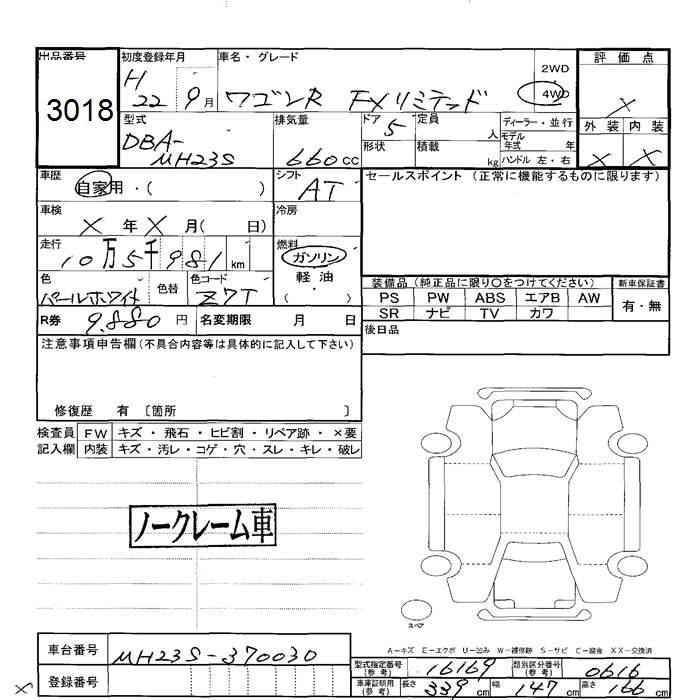 出品番号
3018
初度登録年月
H
22 9月
車名・グレード
ワゴンR FXリミテッド
2WD
4WD
評価点
X
外装 内装
X X
型式
DBA-
MH23S
排気量
660cc
ドア 5
形状
定員 人
積載 kg
ディーラー・並行
モデル
年式 年
ハンドル 左・右
車歴
自家用・( )
シフト
AT
セールスポイント (正常に機能するものに限ります)
車検
X年X月( 日)
冷房
走行
10万5千981km
燃料
ガソリン
軽油
( )
色
パールホワイト
色替
色コード
Z7T
装備品(純正品に限り〇をつけてください)
PS PW ABS エアB AW
SR ナビ TV カワ
新車保証書
有・無
R券 9.880円
名変期限 月 日
後日品
注意事項申告欄(不具合内容等は具体的に記入して下さい)
修復歴 有 〔箇所 〕
検査員
記入欄
FW キズ・飛石・ヒビ割・リペア跡・×要
内装 キズ・汚レ・コゲ・穴・スレ・キレ・破レ
ノークレーム車
スペア
A―キズ E―エクボ U―凹み W―補修跡 S―サビ C―腐食 XX―交換済
車台番号 MH23S-370030
登録番号
型式指定番号
(参考)
16169
類別区分番号
(参考)
0616
車庫証明用
(参考)
長さ 339cm 幅 147cm 高さ 166cm
X